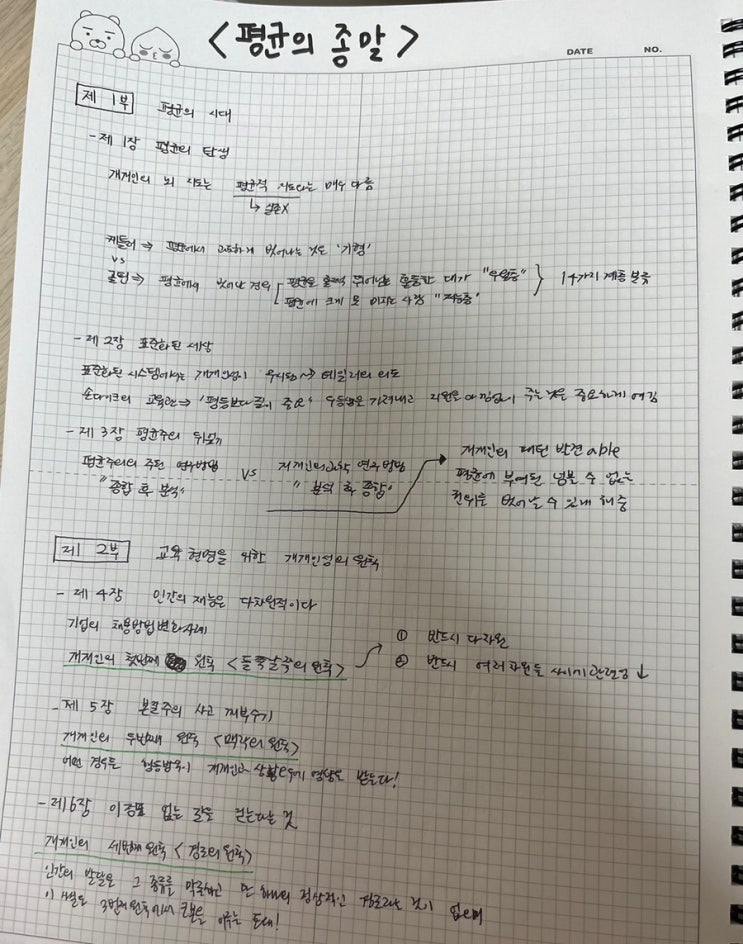 <평균의 종말>
DATE NO.
제 1부 평균의 시대
- 제 1장 평균의 탄생
개개인의 뇌 지도는 평균적 지도와는 매우 다름
↳ 실존X
케틀러 ⇒ 평균에서 하게 벗어나는 것은 '기형'
VS
골턴 ⇒ 평균에서 벗어난 경우 평균을 훌쩍 뛰어넘는 훌륭한 대가 "우월층"
평균에 크게 못 미치는 사람 "저능층"
} 14가지 계층 분류
- 제 2장 표준화된 세상
표준화된 시스템에서는 개개인성이 무시됨 ~> 테일러의 의도
손다이크의 교육관 ⇒ '평등보다 질이 중요' 우등생을 가려내고 지원을 아낌없이 주는 것을 중요하게 여김
- 제 3장 평균주의 뒤엎기
평균주의의 주된 연구방법
"종합 후 분석"
VS
개개인의 과학 연구방법
"분석 후 종합"
개개인의 패턴 발견 able
평균에 부여된 넘볼 수 없는
권위를 벗어날 수 있게 해줌
제 2부 교육 혁명을 위한 개개인성의 원칙
- 제 4장 인간의 재능은 다차원적이다
기업의 채용방법변화사례
개개인의 첫번째 원칙 <들쭉날쭉의 원칙>
① 반드시 다차원
② 반드시 여러차원들 사이에 관련성 ↓
- 제 5장 본질주의 사고 깨부수기
개개인의 두번째 원칙 <맥락의 원칙>
어떤 경우든 행동방식이 개개인과 상황 모두에 영향을 받는다!
- 제 6장 이정표 없는 길을 걷는다는 것
개개인의 세번째 원칙 <경로의 원칙>
인간의 발달은 그 종류를 막론하고 단 하나의 정상적인 경로라는 것이 없으며
이 사실은 3번째 원칙에서 근본을 이루는 토대!